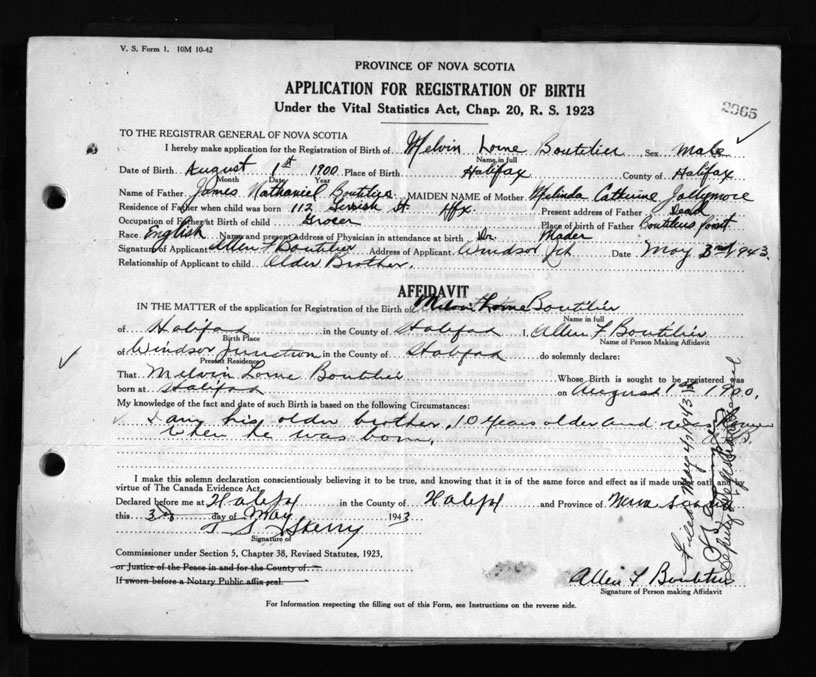 V. S. Form 1. 10M 10-42
PROVINCE OF NOVA SCOTIA
APPLICATION FOR REGISTRATION OF BIRTH
Under the Vital Statistics Act, Chap. 20, R. S. 1923
2965
TO THE REGISTRAR GENERAL OF NOVA SCOTIA
I hereby make application for the Registration of Birth of Melvin Lorne Boutilier Sex Male
Name in full
Date of Birth August 1st 1900 Place of Birth Halifax County of Halifax
Month Date Year
Name of Father James Nathaniel Boutilier MAIDEN NAME of Mother Melinda Catherine Jollymore
Residence of Father when child was born 112 Gerrish St Hfx Present address of Father Dead
Occupation of Father at Birth of child Grocer Place of birth of Father Boutiliers Point
Race English Name and present address of Physician in attendance at birth Dr. Mader
Signature of Applicant Allen F Boutilier Address of Applicant Windsor Jct Date May 3rd 1943.
Relationship of Applicant to child Older Brother.
AFFIDAVIT
IN THE MATTER of the application for Registration of the Birth of Melvin Lorne Boutilier
Name in full
of Halifax in the County of Halifax I, Allen F Boutilier
Birth Place Name of Person Making Affidavit
of Windsor Junction in the County of Halifax do solemnly declare:
Present Residence
That Melvin Lorne Boutilier Whose Birth is sought to be registered was
born at Halifax on August 1st 1900.
My knowledge of the fact and date of such Birth is based on the following Circumstances:
I am his older brother, 10 years older and was home
when he was born.
I make this solemn declaration conscientiously believing it to be true, and knowing that it is of the same force and effect as if made under oath and by
virtue of The Canada Evidence Act.
Declared before me at Halifax in the County of Halifax and Province of Nova Scotia
this 3rd day of May 1943
Sherry
Signature of
Commissioner under Section 5, Chapter 38, Revised Statutes, 1923,
or Justice of the Peace in and for the County of
If sworn before a Notary Public affix seal.
Allen F Boutilier
Signature of Person making Affidavit
For Information respecting the filling out of this Form, see Instructions on the reverse side.
Filed May 4, 1943
Deputy Registrar General